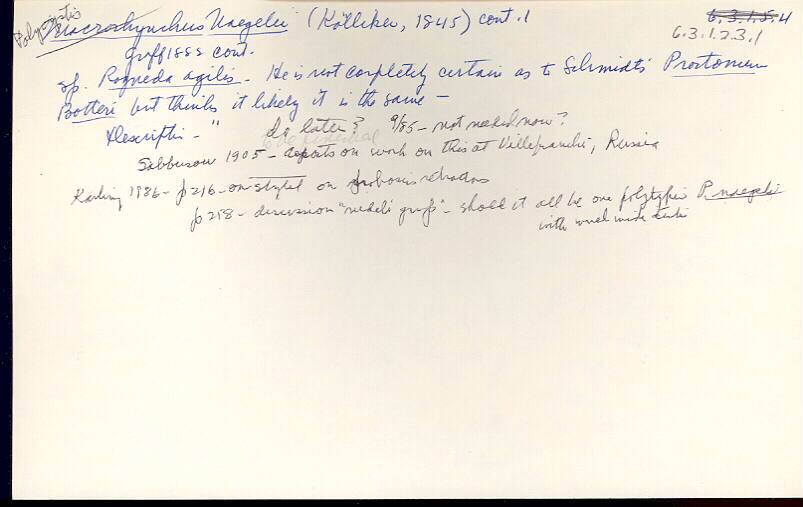 Polycystis
Macrorhynchus Naegelii (Kölliker, 1845) cont. 1
6.3.1.5.4
6.3.1.2.3.1
Graff 1882 cont.
sp. Rogneda agilis. He is not completely certain as to Schmidt's Prostomum
Botteri but thinks it likely it is the same —
Descriptn - " do later? 9/85 - not needed now?
Sabbusow 1905 - reports on work on this at Villefranche, Russia
Karling 1986 - p 216 - on stylet on proboscis retractors
p 218 - discussion "naegelii group" - should it all be one polytypic P. naegelii
with much wider